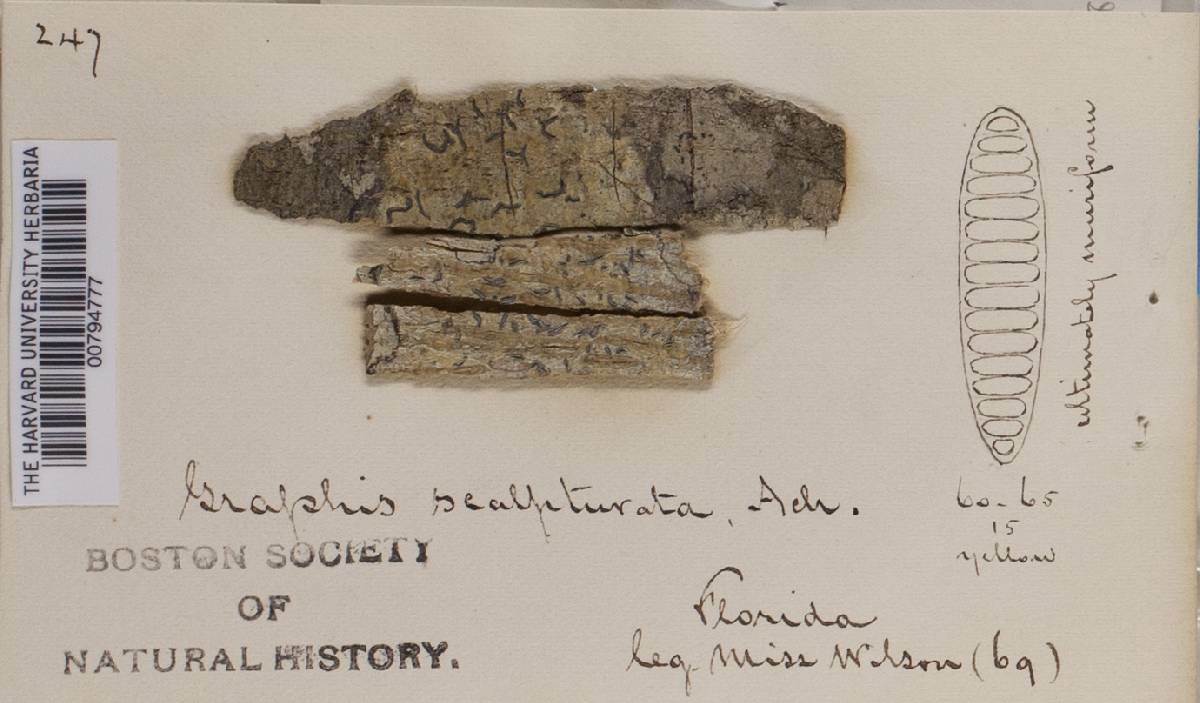 247
THE HARVARD UNIVERSITY HERBARIA
00794777
ultimately muriform
Graphis scalpturata, Ach.
60-65
15
yellow
BOSTON SOCIETY
OF
NATURAL HISTORY.
Florida
leg. Miss Wilson (69)